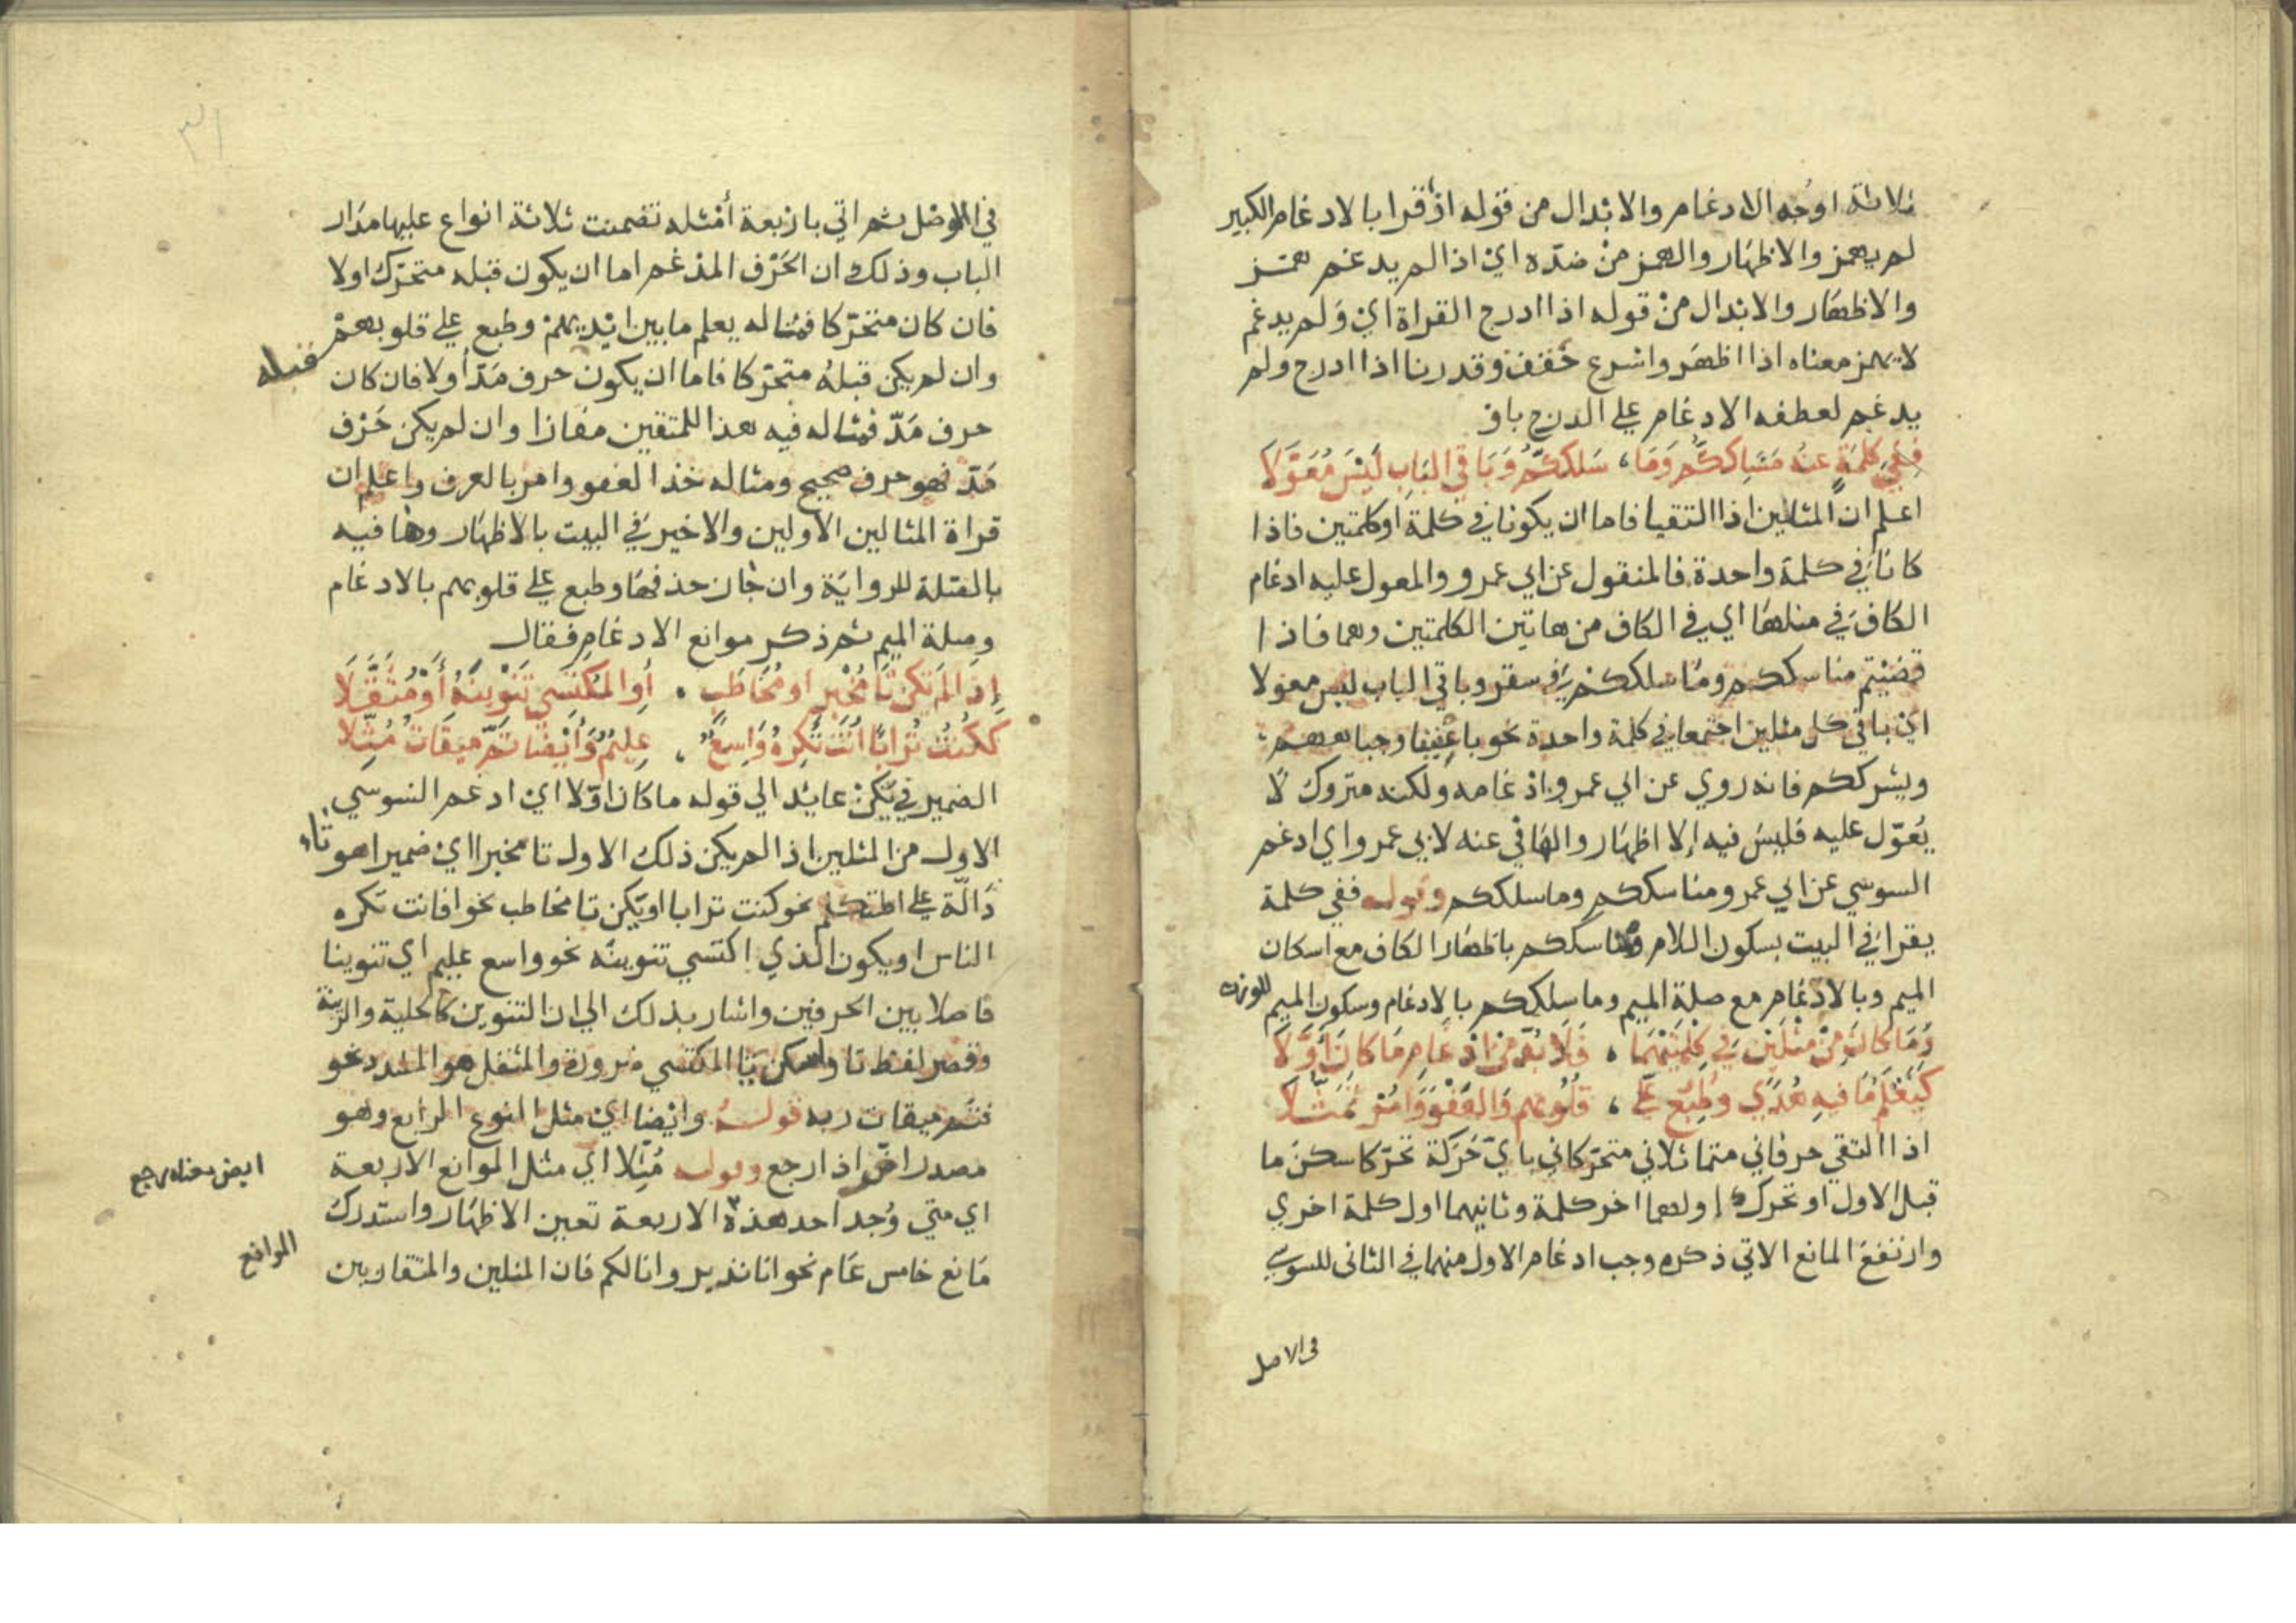 ثلاثة اوجه الادغام والابدال من قوله اذ قرا بالادغام الكبير
لم يهمز والاظهار والهمز من ضده اي اذا لم يدغم همز
والاظهار والابدال من قوله اذا ادرج القراة اي ولم يدغم
لا يهمز معناه اذا اظهر واسرع خفف وقدرنا اذا ادرج ولم
يدغم لعطفه الادغام على الدرج باو
ففي كلمة عنه مناسككم وما، سلككم وباقي الباب ليس معولا
اعلم ان المثلين اذا التقيا فاما ان يكونا في كلمة او كلمتين فاذا
كانا في كلمة واحدة فالمنقول عن ابي عمرو والمعول عليه ادغام
الكاف في مثلها اي في الكاف من هاتين الكلمتين وهما فاذا
قضيتم مناسككم وما سلككم في سقر وباقي الباب ليس معولا
اي باقي كل مثلين اجتمعا في كلمة واحدة نحو باعيننا وجباههم
ويشرككم فانه روي عن ابي عمرو ادغامه ولكنه متروك لا
يعول عليه فليس فيه الا اظهار والها في عنه لابي عمرو اي ادغم
السوسي عن ابي عمرو مناسككم وما سلككم وقوله ففي كلمة
يقرا في البيت بسكون اللام ومناسككم باظهار الكاف مع اسكان
الميم وبالادغام مع صلة الميم وما سلككم بالادغام وسكون الميم للوزن
وما كان من مثلين في كلمتيهما، فلا بد من ادغام ما كان اولا
كيعلم ما فيه هدى وطبع على، قلوبهم والعفو وامر تمثلا
اذا التقي حرفاني متماثلاني متحركاني باي حركة تحركا سكن ما
قبل الاول او تحرك اولهما اخر كلمة وثانيهما اول كلمة اخري
وارتفع المانع الاتي ذكره وجب ادغام الاول منهما في الثاني للسوسي
في الاصل
٣١
في الوصل ثم اتي باربعة أمثله تضمنت ثلاثة انواع عليها مدار
الباب وذلك ان الحرف المدغم اما ان يكون قبله متحرك اولا
فان كان متحركا فمثاله يعلم ما بين ايديهم وطبع على قلوبهم
وان لم يكن قبله متحركا فاما ان يكون حرف مد أولا فان كان قبله
حرف مد فمثاله فيه هدا للمتقين مفازا وان لم يكن حرف
مد فهو حرف صحيح ومثاله خذ العفو وامر بالعرف واعلم ان
قراة المثالين الاولين والاخير في البيت بالاظهار وها فيه
بالصلة للرواية وان جاز حذفها وطبع على قلوبهم بالادغام
وصلة الميم ثم ذكر موانع الادغام فقال
إذا لم يكن تا مخبر او مخاطب، أو المكتسي تنوينه أو مثقلا
ككنت ترابا انت تكره واسع، عليم وأيضا تم ميقات مثلا
الضمير في يكن عايد الي قوله ما كان اولا اي ادغم السوسي
الاول من المثلين اذا لم يكن ذلك الاول تا مخبر اي ضميرا هو تاء
دالة على المتكلم نحو كنت ترابا او يكن تا مخاطب نحو افانت تكره
الناس او يكون الذي اكتسي تنوينه نحو واسع عليم اي تنوينا
فاصلا بين الحرفين واشار بذلك الي ان التنوين كالحلية والزينة
وقصر لفظ تا واسكن يا المكتسي ضرورة والمثقل هو المشدد نحو
فتم ميقات ربه قوله وايضا اي مثل النوع الرابع وهو
مصدر اض اذا رجع وقوله مثلا اي مثل الموانع الاربعة
ايض معناه رجع
اي متي وجد احد هذه الاربعة تعين الاظهار واستدرك
الموانع
مانع خامس عام نحو انا نذير وانا لكم فان المثلين والمتقاربين